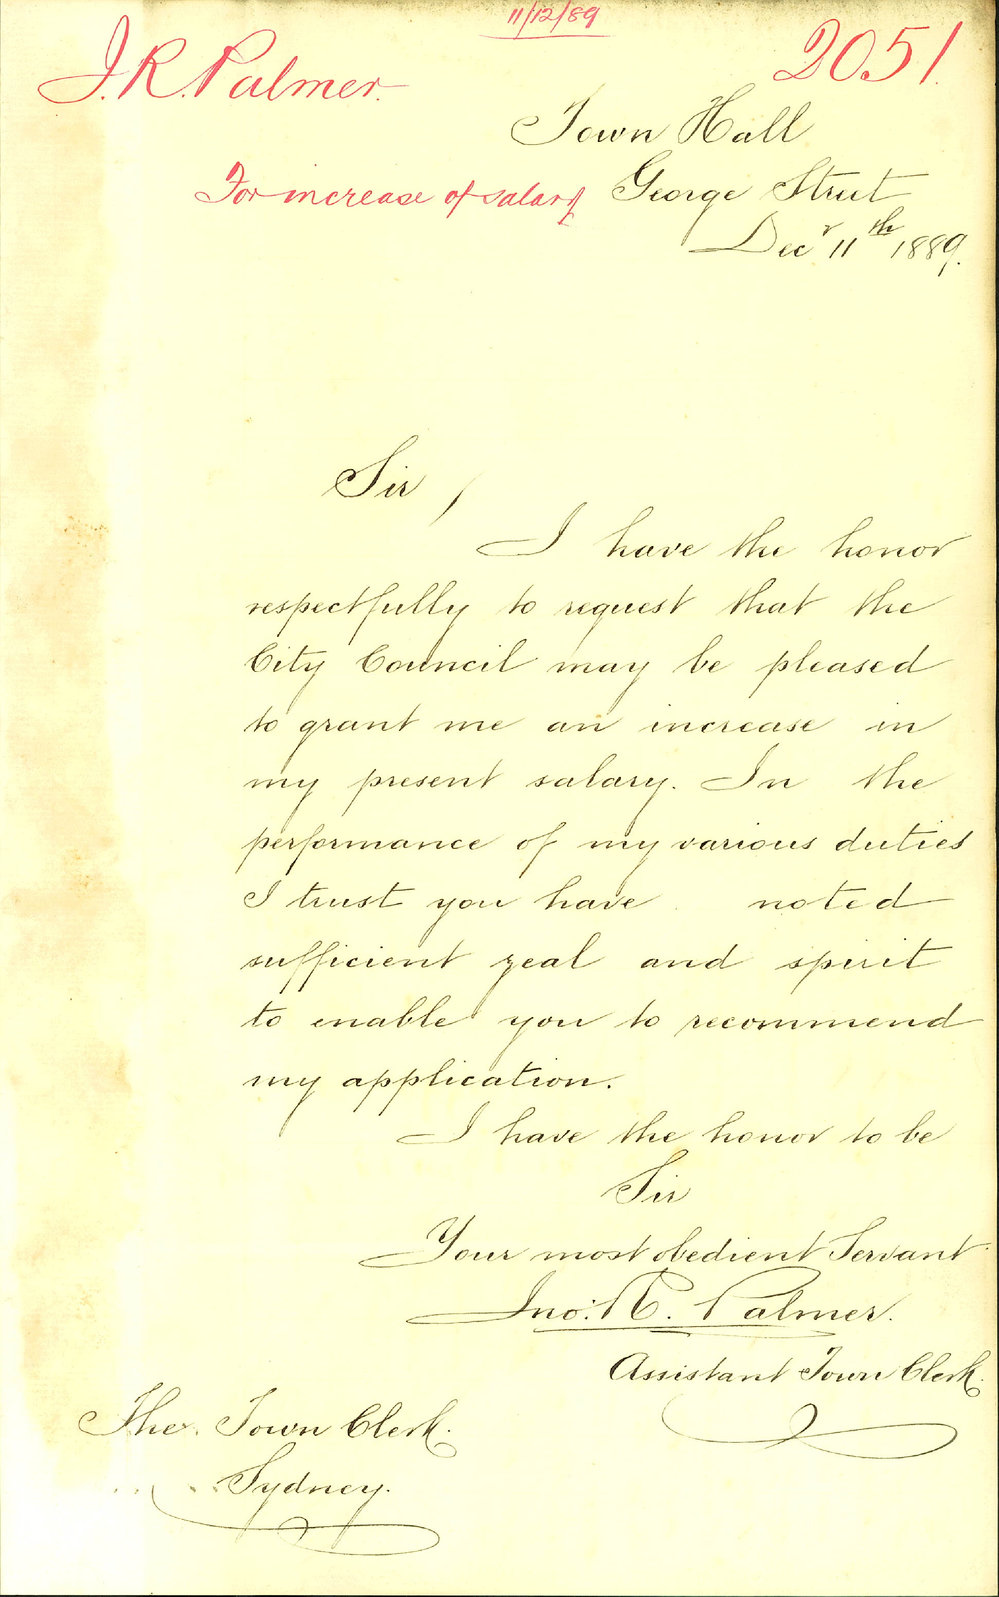 11/12/89
J. R. Palmer.
2051.
Town Hall
For increase of salary
George Street
Decr 11th 1889.
Sir,
I have the honor
respectfully to request that the
City Council may be pleased
to grant me an increase in
my present salary. In the
performance of my various duties
I trust you have noted
sufficient zeal and spirit
to enable you to recommend
my application.
I have the honor to be
Sir
Your most obedient Servant
Jno: R. Palmer.
Assistant Town Clerk.
The Town Clerk.
Sydney.